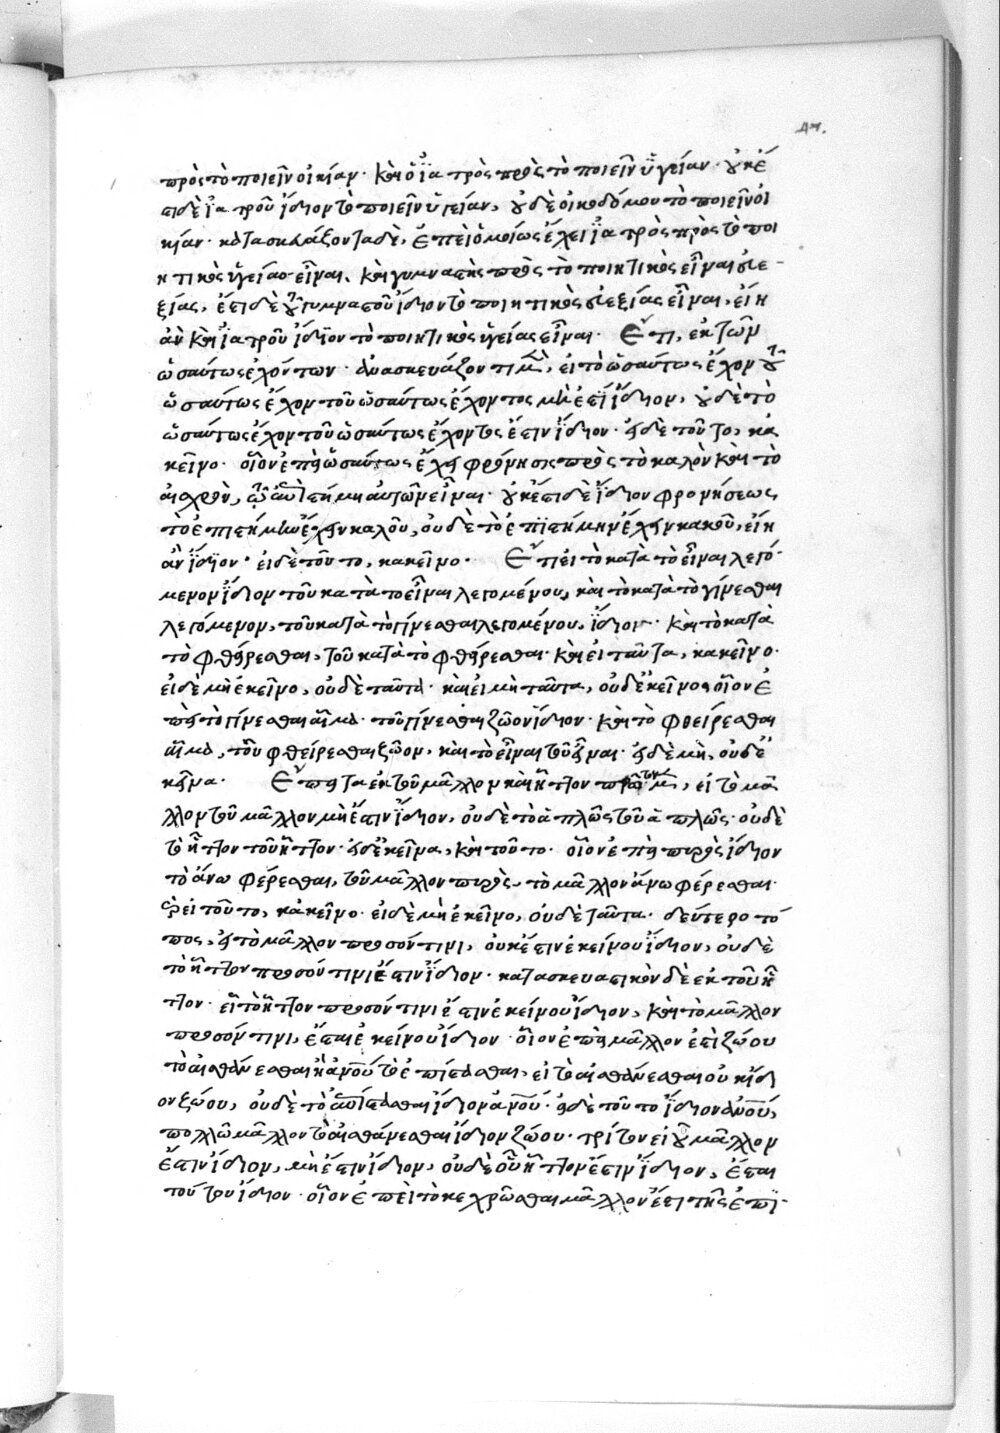 πρὸς τὸ ποιεῖν οἰκίαν· καὶ ὁ ἰατρὸς πρὸς τὸ ποιεῖν ὑγείαν· οὐκ ἔ
στι δὲ ἰατροῦ ἴδιον τὸ ποιεῖν ὑγείαν, οὐδὲ οἰκοδόμου τὸ ποιεῖν οἰ
κίαν· κατασκευάζοντα δὲ, ἐπεὶ ὁμοίως ἔχει ἰατρὸς πρὸς τὸ ποι
ητικὸς ὑγείας εἶναι, καὶ γυμναστὴς πρὸς τὸ ποιητικὸς εἶναι εὐε-
ξίας, ἔστι δὲ γυμναστοῦ ἴδιον τὸ ποιητικὸς εὐεξίας εἶναι, εἴη
ἂν καὶ ἰατροῦ ἴδιον τὸ ποιητικὸς ὑγείας εἶναι· Ἔτι, ἐκ τῶν
ὡσαύτως ἐχόντων· ἀνασκευάζοντι μὲν, εἰ τὸ ὡσαύτως ἔχον
ὡσαύτως ἔχον τοῦ ὡσαύτως ἔχοντος μὴ ἔστι ἴδιον, οὐδὲ τὸ
ὡσαύτως ἔχον τοῦ ὡσαύτως ἔχοντος ἔστιν ἴδιον· εἰ δὲ τοῦτο, κα
κεῖνο· οἷον ἐπεὶ ὡσαύτως ἔχει φρόνησις πρὸς τὸ καλὸν καὶ τὸ
αἰσχρὸν, τῷ ἐπιστήμη αὐτῶν εἶναι· οὐκ ἔστι δὲ ἴδιον φρονήσεως
τὸ ἐπιστήμην ἔχειν καλοῦ, οὐδὲ τὸ ἐπιστήμην ἔχειν κακοῦ, εἴη
ἂν ἴδιον· εἰ δὲ τοῦτο, κακεῖνο· Ἔτι εἰ τὸ κατὰ τὸ εἶναι λεγό-
μενον ἴδιον τοῦ κατὰ τὸ εἶναι λεγομένου, καὶ τὸ κατὰ τὸ γίνεσθαι
λεγόμενον, τοῦ κατὰ τὸ γίνεσθαι λεγομένου, ἴδιον· καὶ τὸ κατὰ
τὸ φθείρεσθαι, τοῦ κατὰ τὸ φθείρεσθαι· καὶ εἰ ταῦτα, κακεῖνο·
εἰ δὲ μὴ ἐκεῖνο, οὐδὲ ταῦτα· καὶ εἰ μὴ ταῦτα, οὐδ' ἐκεῖνο· οἷον ἐ
πεὶ τὸ γίνεσθαι ἅμα· τοῦ γίνεσθαι ζῶον ἴδιον· καὶ τὸ φθείρεσθαι
ἅμα, τοῦ φθείρεσθαι ζῶον, καὶ τὸ εἶναι τοῦ εἶναι· εἰ δὲ μὴ, οὐδὲ
κεῖνα· Ἔπειτα ἐκ τοῦ μᾶλλον καὶ ἧττον, εἰ τὸ μᾶ
λλον τοῦ μᾶλλον μὴ ἔστιν ἴδιον, οὐδὲ τὸ ἁπλῶς τοῦ ἁπλῶς· οὐδὲ
τὸ ἧττον τοῦ ἧττον· εἰ δὲ κεῖνα, καὶ τοῦτο· οἷον ἐπεὶ πυρὸς ἴδιον
τὸ ἄνω φέρεσθαι, τοῦ μᾶλλον πυρὸς, τὸ μᾶλλον ἄνω φέρεσθαι·
καὶ εἰ τοῦτο, κακεῖνο· εἰ δὲ μὴ ἐκεῖνο, οὐδὲ ταῦτα· δεύτερο τό
πος, εἰ τὸ μᾶλλον προσόν τινι, οὐκ ἔστιν ἐκείνου ἴδιον, οὐδὲ
τὸ ἧττον προσόν τινι ἔστιν ἴδιον· κατασκευαστικὸν δὲ ἐκ τοῦ ἧ
ττον· εἰ τὸ ἧττον προσόν τινι ἔστιν ἐκείνου ἴδιον, καὶ τὸ μᾶλλον
προσόν τινι, ἔσται ἐκείνου ἴδιον· οἷον ἐπεὶ μᾶλλον ἐστὶ ζώου
τὸ αἰσθάνεσθαι ἢ ἀνου τὸ ἐπίστασθαι, εἰ τὸ αἰσθάνεσθαι οὐκ ἴδι
ον ζώου, οὐδὲ τὸ ἐπίστασθαι ἴδιον ἀνου· εἰ δὲ τοῦτο ἴδιον ἀνου,
πολλῶ μᾶλλον τὸ αἰσθάνεσθαι ἴδιον ζώου· τρίτον εἰ οὗ μᾶλλον
ἔστιν ἴδιον, μὴ ἔστιν ἴδιον, οὐδὲ οὗ ἧττον ἔστιν ἴδιον, ἔσται
τούτου ἴδιον· οἷον ἐπεὶ τὸ κεχρῶσθαι μᾶλλον ἐστὶ τῆς ἐπι-